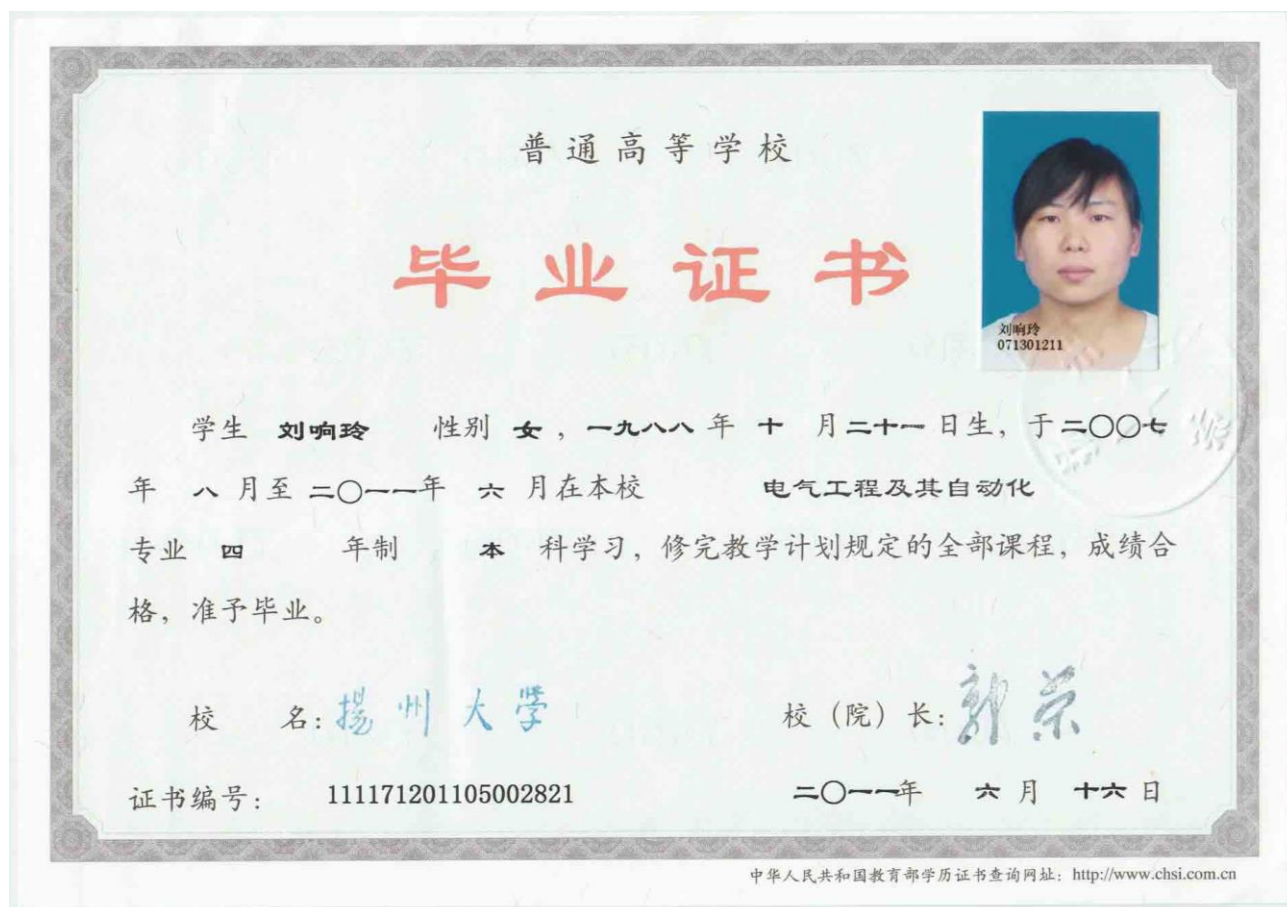 普通高等学校
毕业证书
刘响玲
071301211
学生 刘响玲 性别 女，一九八八年 十 月二十一日生，于二〇〇七
年 八 月至二〇一一年 六 月在本校 电气工程及其自动化
专业 四 年制 本 科学习，修完教学计划规定的全部课程，成绩合
格，准予毕业。
校 名：揚州大学
校（院）长：郭荣
证书编号： 111171201105002821
二〇一一年 六 月 十六 日
中华人民共和国教育部学历证书查询网址：http://www.chsi.com.cn